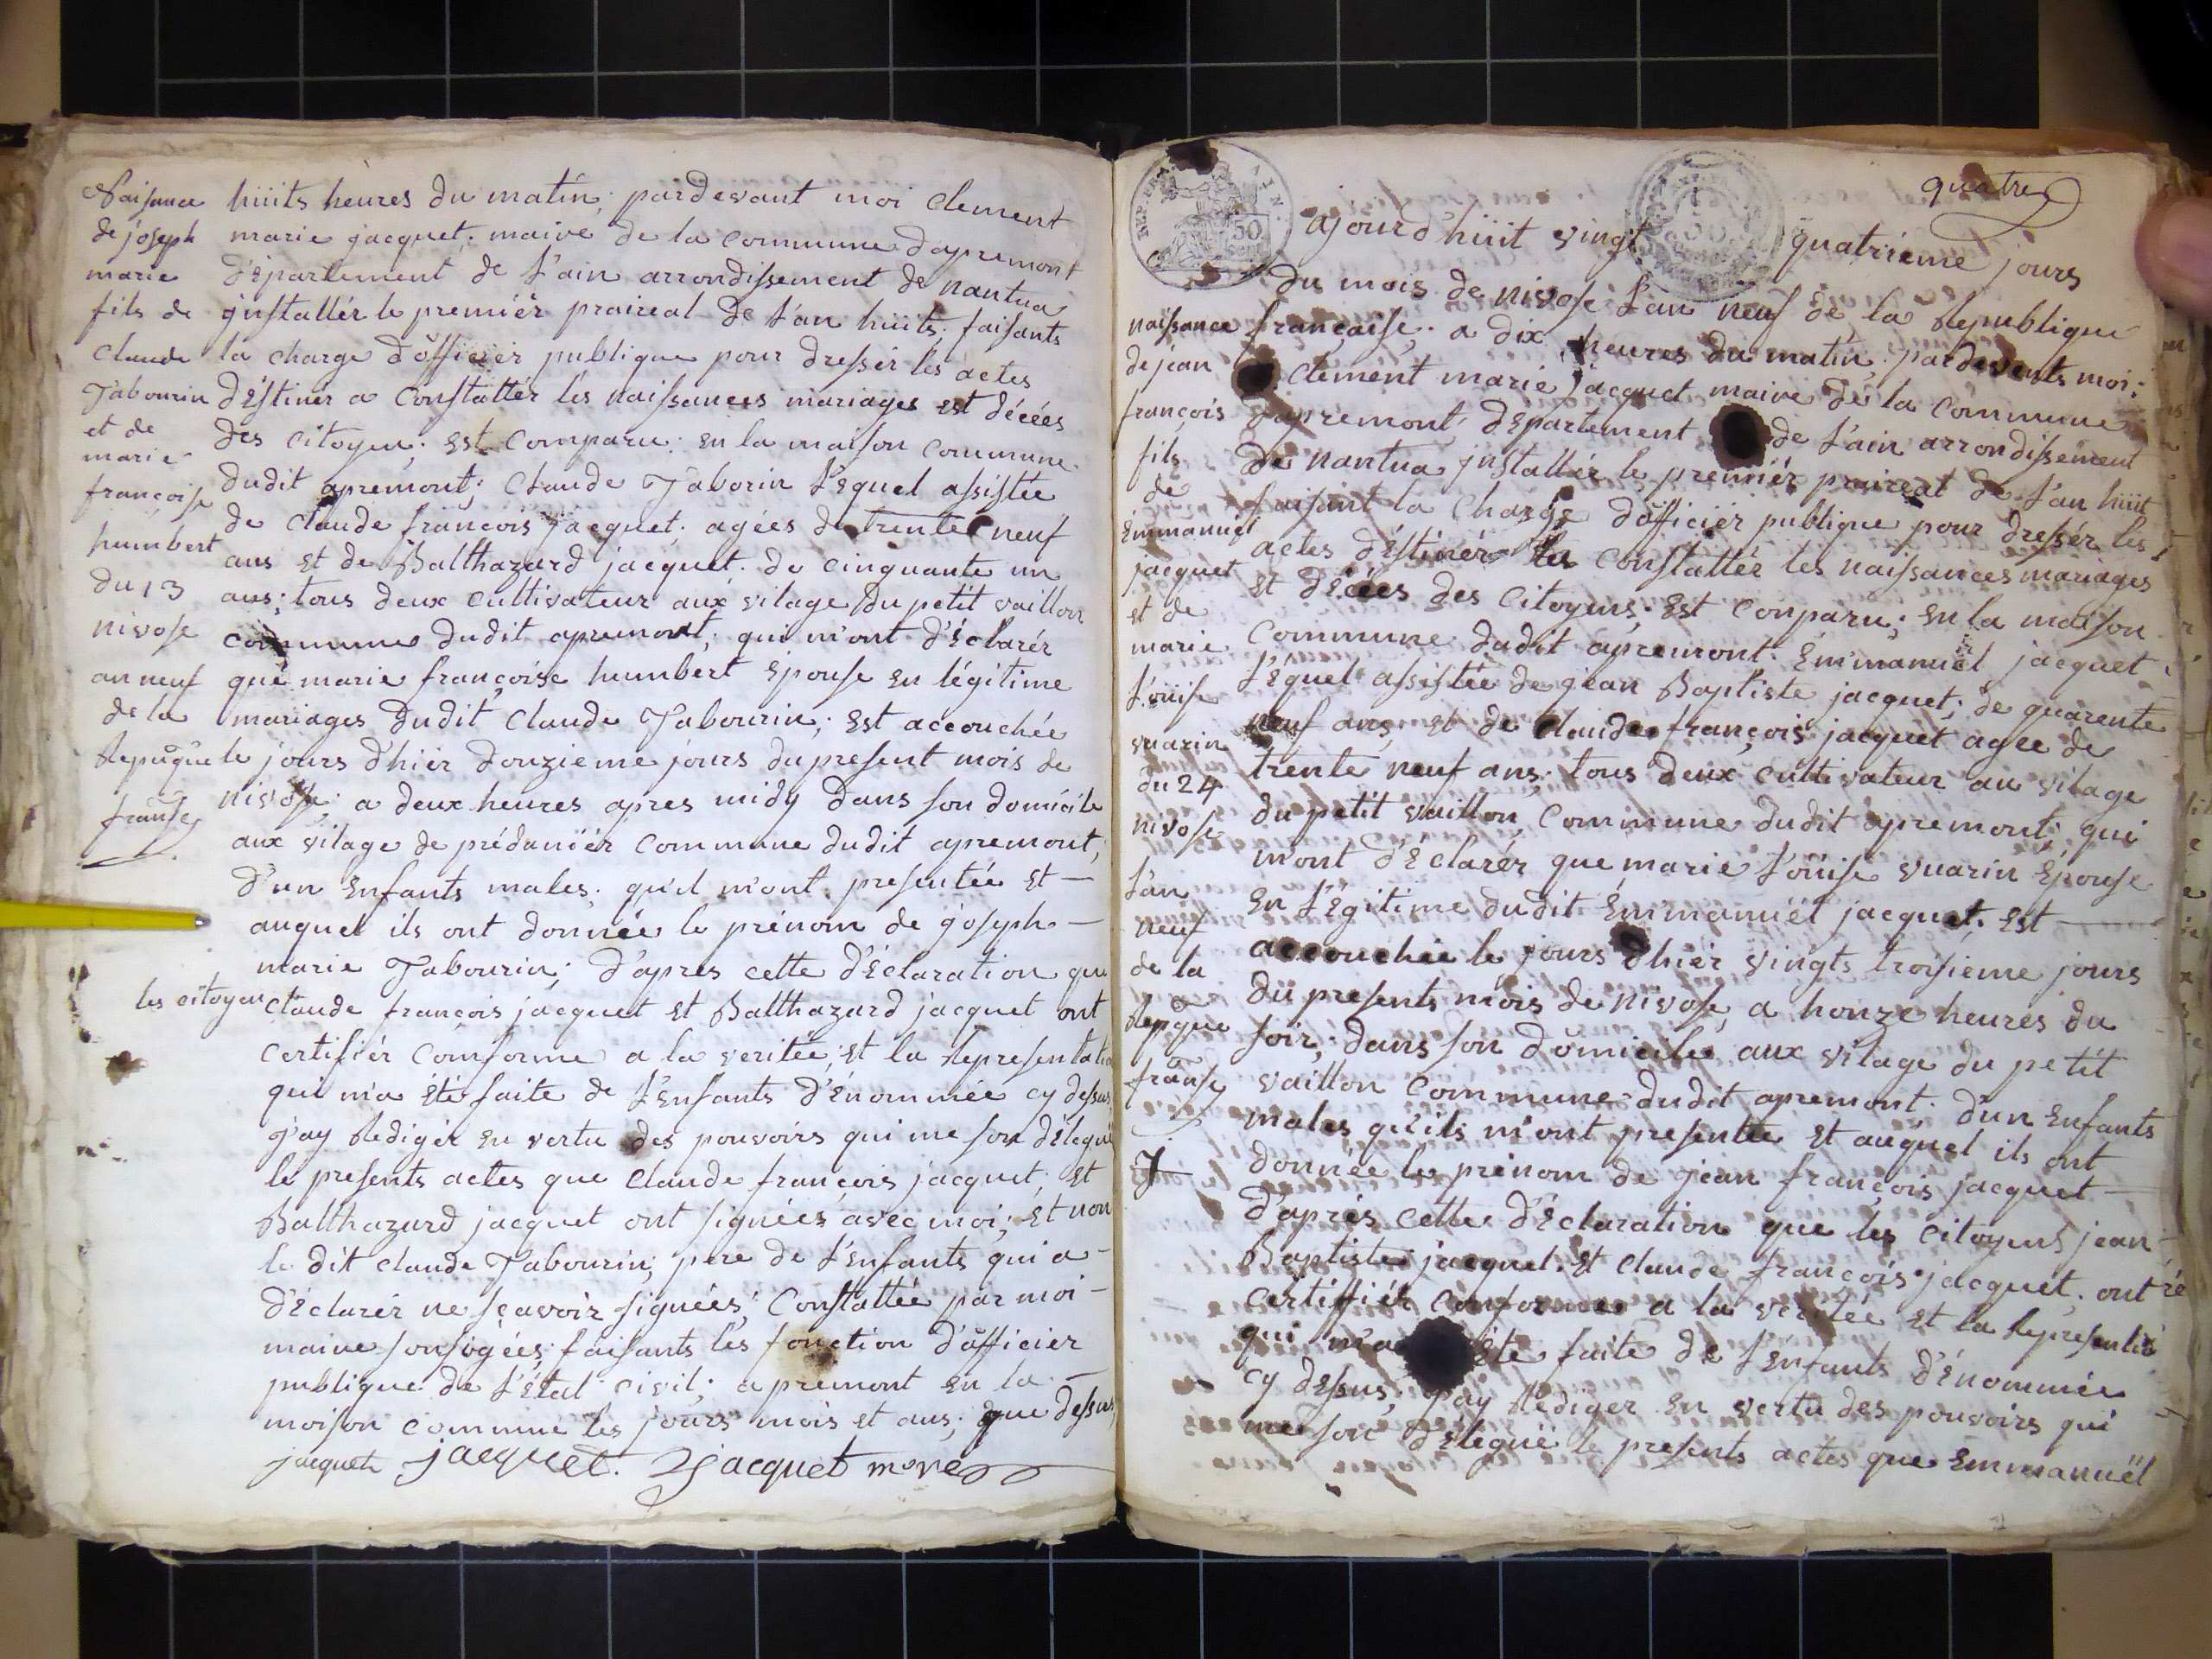 Naissance
de joseph
marie
fils de
claude
Tabourin
et de
marie
françoise
humbert
du 13
nivose
an neuf
de la
Repuque
franse
huiits heures du matin; pardevant moi clement
marie jacquet. maire de la commune dapremont
département de L'ain arrondissement de nantua
jnstallér le premiér praireal de L'an huiits; faisants
la charge dofficiér publique pour dressér les actes
déstinér a constattér les naissances mariages est décées
des citoyen; est comparu: en la maison commune
dudit apremont; claude Taborin Lequel assistée
de claude francois jacquet; agées de trente neuf
ans et de Balthazard jacquet. de cinquante un
ans; tous deux cultivateur aux vilage du petit vaillon
commune dudit apremont; qui m'ont d'éclarér
que marie françoise humbert épouse en légitime
mariages dudit claude Tabourin; est accouchée
le jours d'hiér douzieme jours du present mois de
nivose; a deux heures apres midy dans son domicile
aux vilage de prédaniér commune dudit apremont,
d'un enfants males; qu'il m'ont presentée et
auquel ils ont donnée le prénom de joseph
marie Tabourin; d'apres cette d'éclaration que
les citoyen claude françois jacquet et Balthazard jacquet ont
certifiér comforme a la veritée; et la representation
qui m'a été faite de L'enfants d'énommée cy dessus
j'ay Redigér en vertu des pouvoirs qui me son délegué
le presents actes que claude françois jacquet; et
Balthazard jacquet ont signées avec moi; et non
le dit claude Tabourin; pere de L'enfants qui a
d'éclarér ne sçavoir signées; constattée par moi
maire sonsigées; faisants les fonction d'officier
publique de L'état civil; apremont en la
moison commune les jours mois et ans; que dessus
jacquet jacquet. Jjacquet mere
quatre
REP. FRA
50
ajourd'huiit vingt quatriéme jours
du mois de nivose L'an neuf de la Republique
française; a dix heures du matin pardevents moi;
clement marie jacquet maire de la commune
dapremont, département de L'ain arrondissement
de nantua jnstallér le premiér praireal de L'an huiit
faisint la charge dofficiér publique pour dressér les
actes déstinér les constattér les naissances mariages
et décées des citoyens; est comparu; en la maison
commune dudit apremont. Emmanuel jacquet
Léquel assistée de jean Baptiste jacquet; de quarente
neuf ans; et de claude françois jacquet agee de
trente neuf ans; tous deux cultivateur au vilage
du petit vaillon commune dudit apremont; qui
m'ont d'éclarér que marie Louise vuarin épouse
en Légitime dudit Emmanuël jacquet; est
accouchée le jours d'hiér vingts troisieme jours
du presents mois de nivose; a honze heures du
soir; dans son domicile aux vilage du petit
vaillon commune dudit apremont. d'un enfants
males qu'ils m'ont presentée et auquel ils ont
donnée le prénom de jean françois jacquet
d'aprés cette d'éclaration que les citoyens jean
Baptiste jacquet. et claude françois jacquet. ont
certiffiér conforme a la veritée et la Representé
qui m'a été faite de L'enfants d'énommée
cy dessus; j'ay Rédiger en vertu des pouvoirs qui
me son délégué le presents actes que Emmanuël
naissance
de jean
françois
fils
de
Emmanuel
jacquet
et de
marie
Louise
vuarin
du 24
nivose
L'an
neuf
de la
Repque
franse